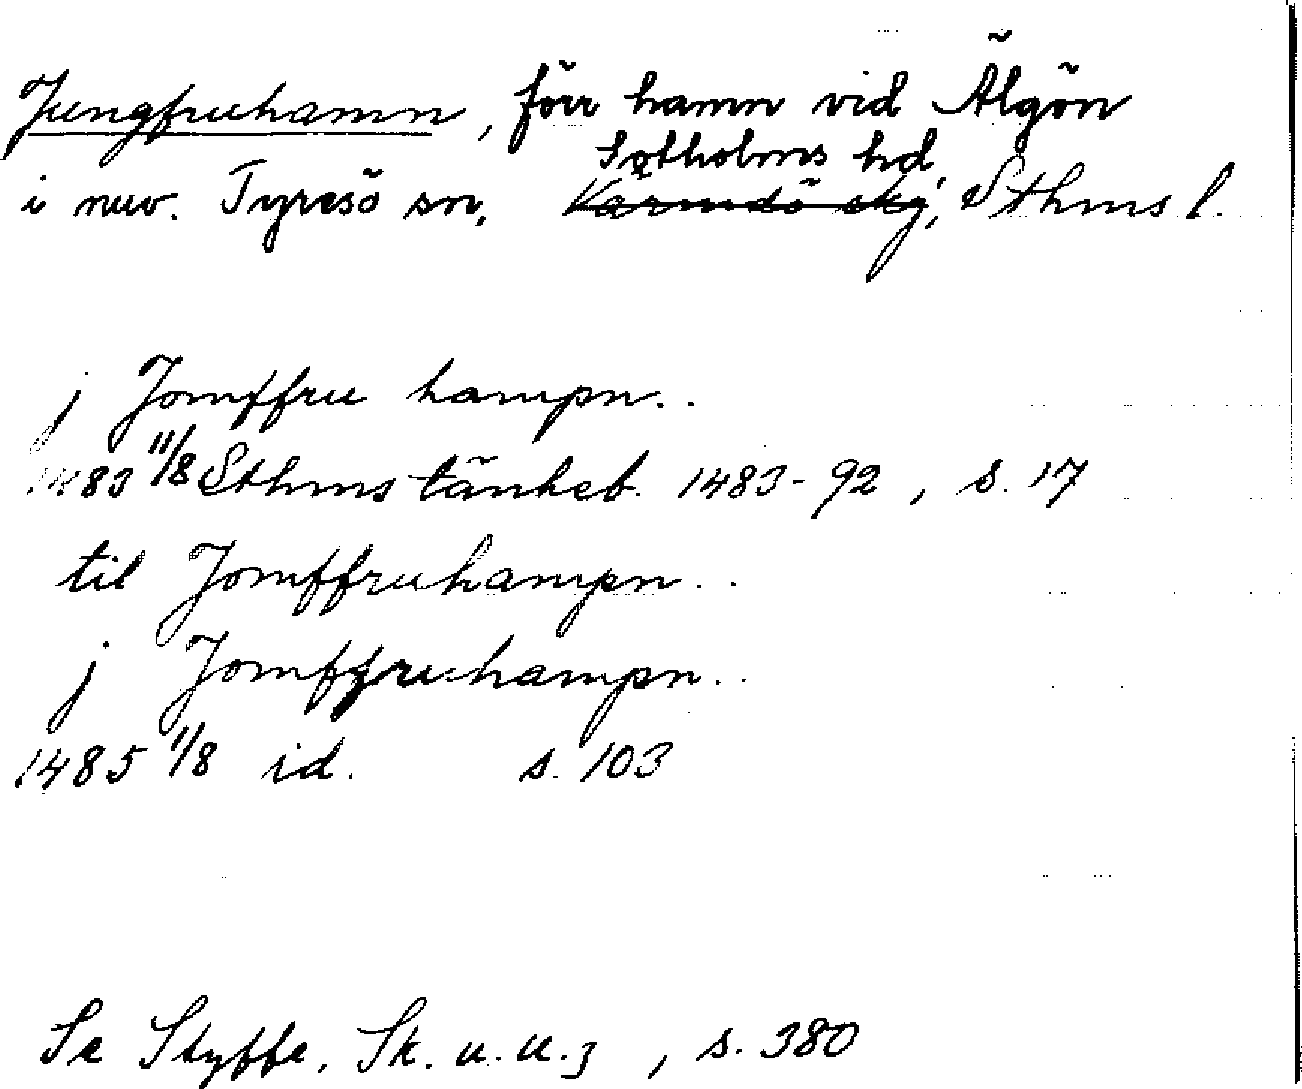 Jungfruhamn, förr hamn vid Älgön
Sotholms hd,
i nuv. Tyresö sn, Värmdö sky, Sthms l.
j Jomffru hampn..
1483 11/8 Sthms tänkeb. 1483-92, s. 17
til Jomffruhampn..
j Jomffruhampn..
1485 11/8 id. s. 103
Se Styffe, Sk. u. u.3, s. 380